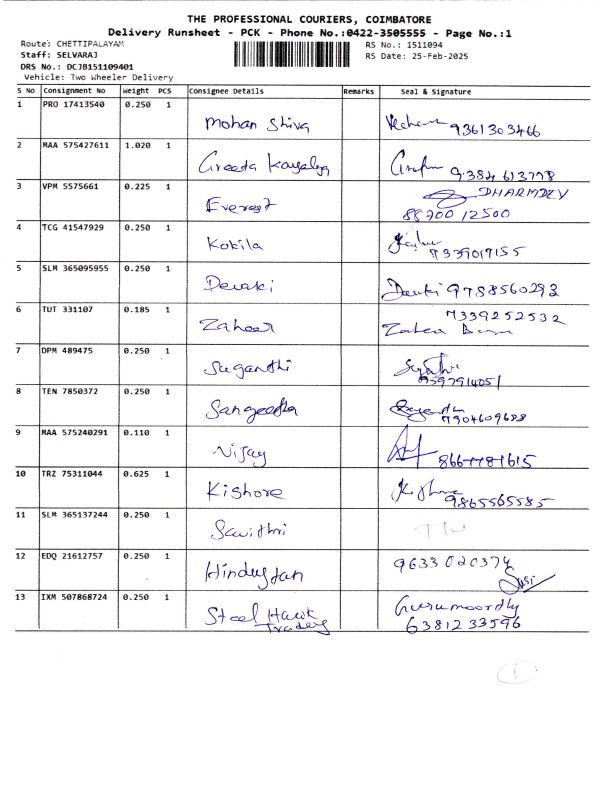 THE PROFESSIONAL COURIERS, COIMBATORE
Delivery Runsheet - PCK - Phone No.:0422-3505555 - Page No.:1
Route: CHETTIPALAYAM
RS No.: 1511094
Staff: SELVARAJ
RS Date: 25-Feb-2025
DRS No.: DCJB151109401
Vehicle: Two Wheeler Delivery
S No Consignment No Weight PCS Consignee Details Remarks Seal & Signature
1 PRO 17413540 0.250 1
Mohan Shiva 9361303466
2 MAA 575427611 1.020 1
Greeta 9384613778
3 VPM 5575661 0.225 1
DHARMDEV
Everest
88700 12500
4 TCG 41547929 0.250 1
Kokila
9339019155
5 SLM 365095955 0.250 1
Devaki Devki 9788560293
6 TUT 331107 0.185 1
7339252532
Zaheer
7 DPM 489475 0.250 1
Suganthi
8 TEN 7850372 0.250 1
Sangeetha
7904609688
9 MAA 575240291 0.110 1
Vijay
10 TRZ 75311044 0.625 1
Kishore
9865565585
11 SLM 365137244 0.250 1
Savithri
12 EDQ 21612757 0.250 1
9633020374
Hindustan Susi
13 IXM 507868724 0.250 1
Gurumoordhy
Steel Hawk
Traders 6381233596
1